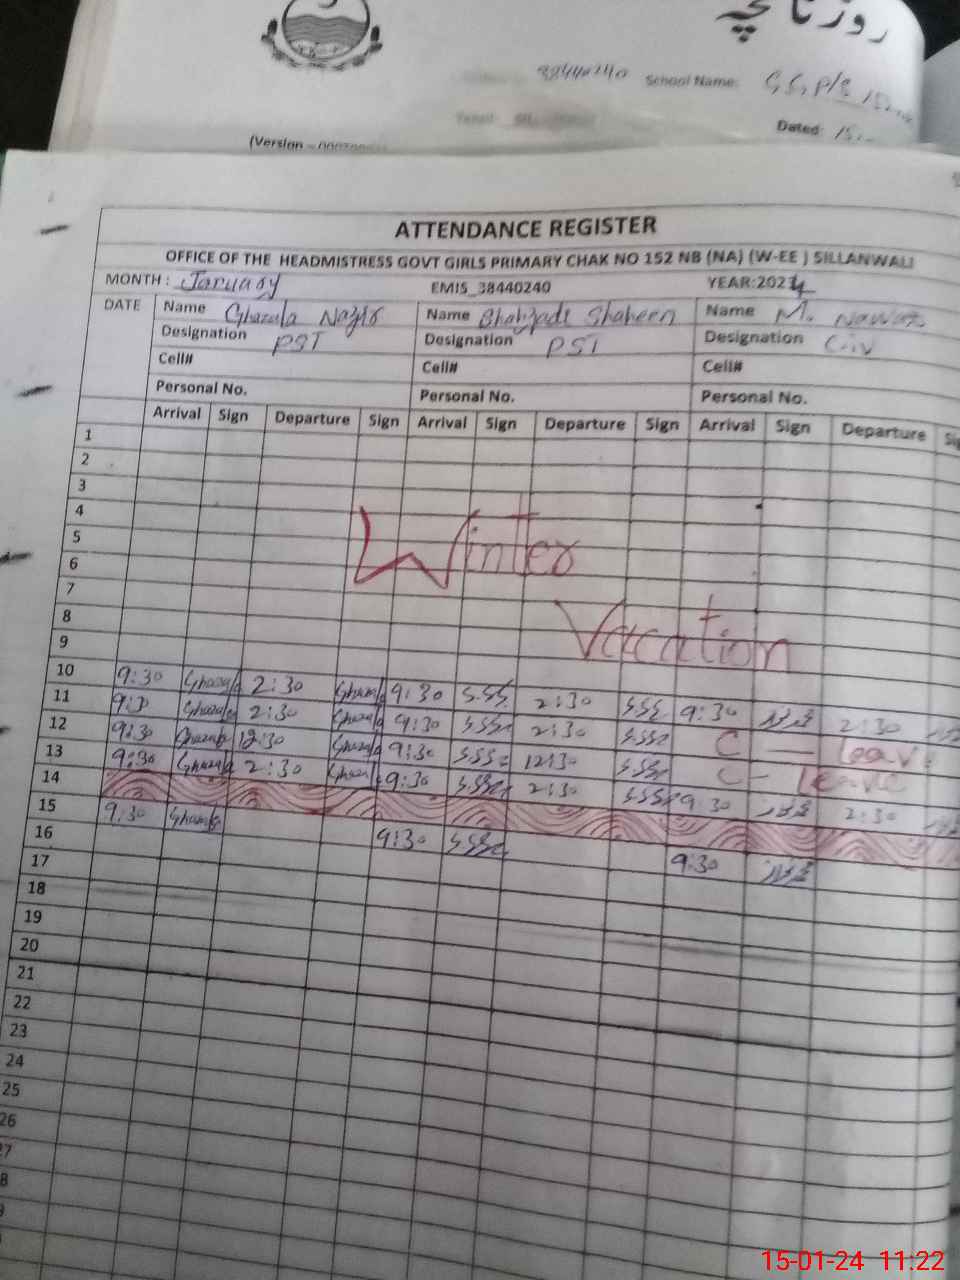 روزنامچہ
38440240 School Name: G.G.P/S
Dated: 15
(Version –
ATTENDANCE REGISTER
OFFICE OF THE HEADMISTRESS GOVT GIRLS PRIMARY CHAK NO 152 NB (NA) (W-EE ) SILLANWALI
MONTH : January EMIS_38440240 YEAR:2024
DATE Name Ghazala Nazir Name Shahzadi Shaheen Name M. Nawaz
Designation PST Designation PST Designation C-iv
Cell# Cell# Cell#
Personal No. Personal No. Personal No.
Arrival Sign Departure Sign Arrival Sign Departure Sign Arrival Sign Departure
1
2
3
4
5 Winter
6
7
8 Vacation
9
10 9:30 Ghazala 2:30 Ghazala 9:30 S.SS. 2:30 SSS 9:30 2:30
11 9:30 Ghazala 2:30 Ghazala 9:30 SSS 2:30 SSS C – Leave
12 9:30 Ghazala 12:30 Ghazala 9:30 SSS 12:30 SSS C – Leave
13 9:30 Ghazala 2:30 Ghazala 9:30 SSS 2:30 SSS 9:30 2:30
14
15 9:30 Ghazala 9:30 SSS 9:30
16
17
18
19
20
21
22
23
24
25
26
15-01-24 11:22